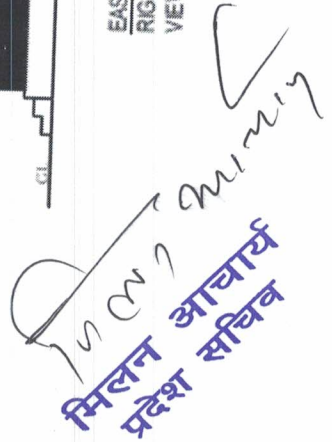 EAS
RIG
VIE
GL
मिलन आचार्य
प्रदेश सचिव